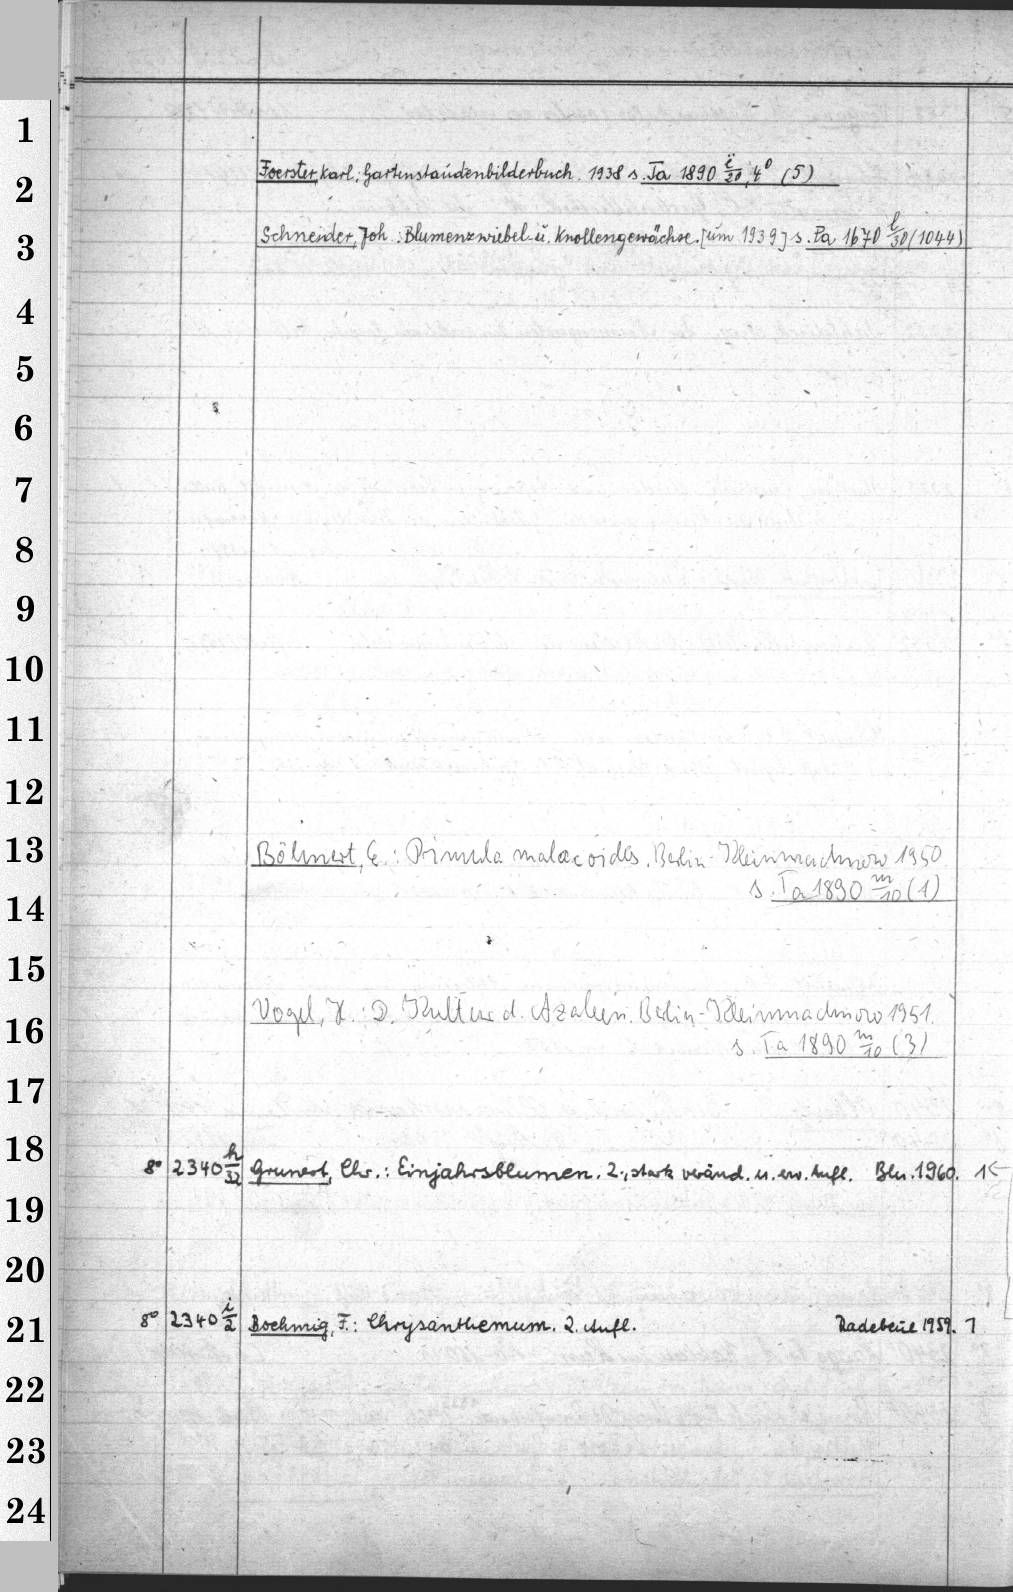 1
2 Foerster, Karl: Gartenstaudenbilderbuch. 1938 s. Ta 1890 i/20, 4° (5)
3 Schneider, Joh.: Blumenzwiebel- u. Knollengewächse. [um 1939] s. Pa 1670 l/30 (1044)
4
5
6
7
8
9
10
11
12
13 Böhnert, E.: Primula malacoides. Berlin-Kleinmachnow 1950
14 s. Ta 1890 m/10 (1)
15
16 Vogel, H.: D. Kultur d. Azaleen. Berlin-Kleinmachnow 1951.
s. Ta 1890 m/10 (3)
17
18 8° 2340 h/32 Grunert, Chr.: Einjahrsblumen. 2., stark veränd. u. erw. Aufl. Bln. 1960. 1
19
20
21 8° 2340 i/2 Boehmig, F.: Chrysanthemum. 2. Aufl. Radebeul 1959. 1
22
23
24